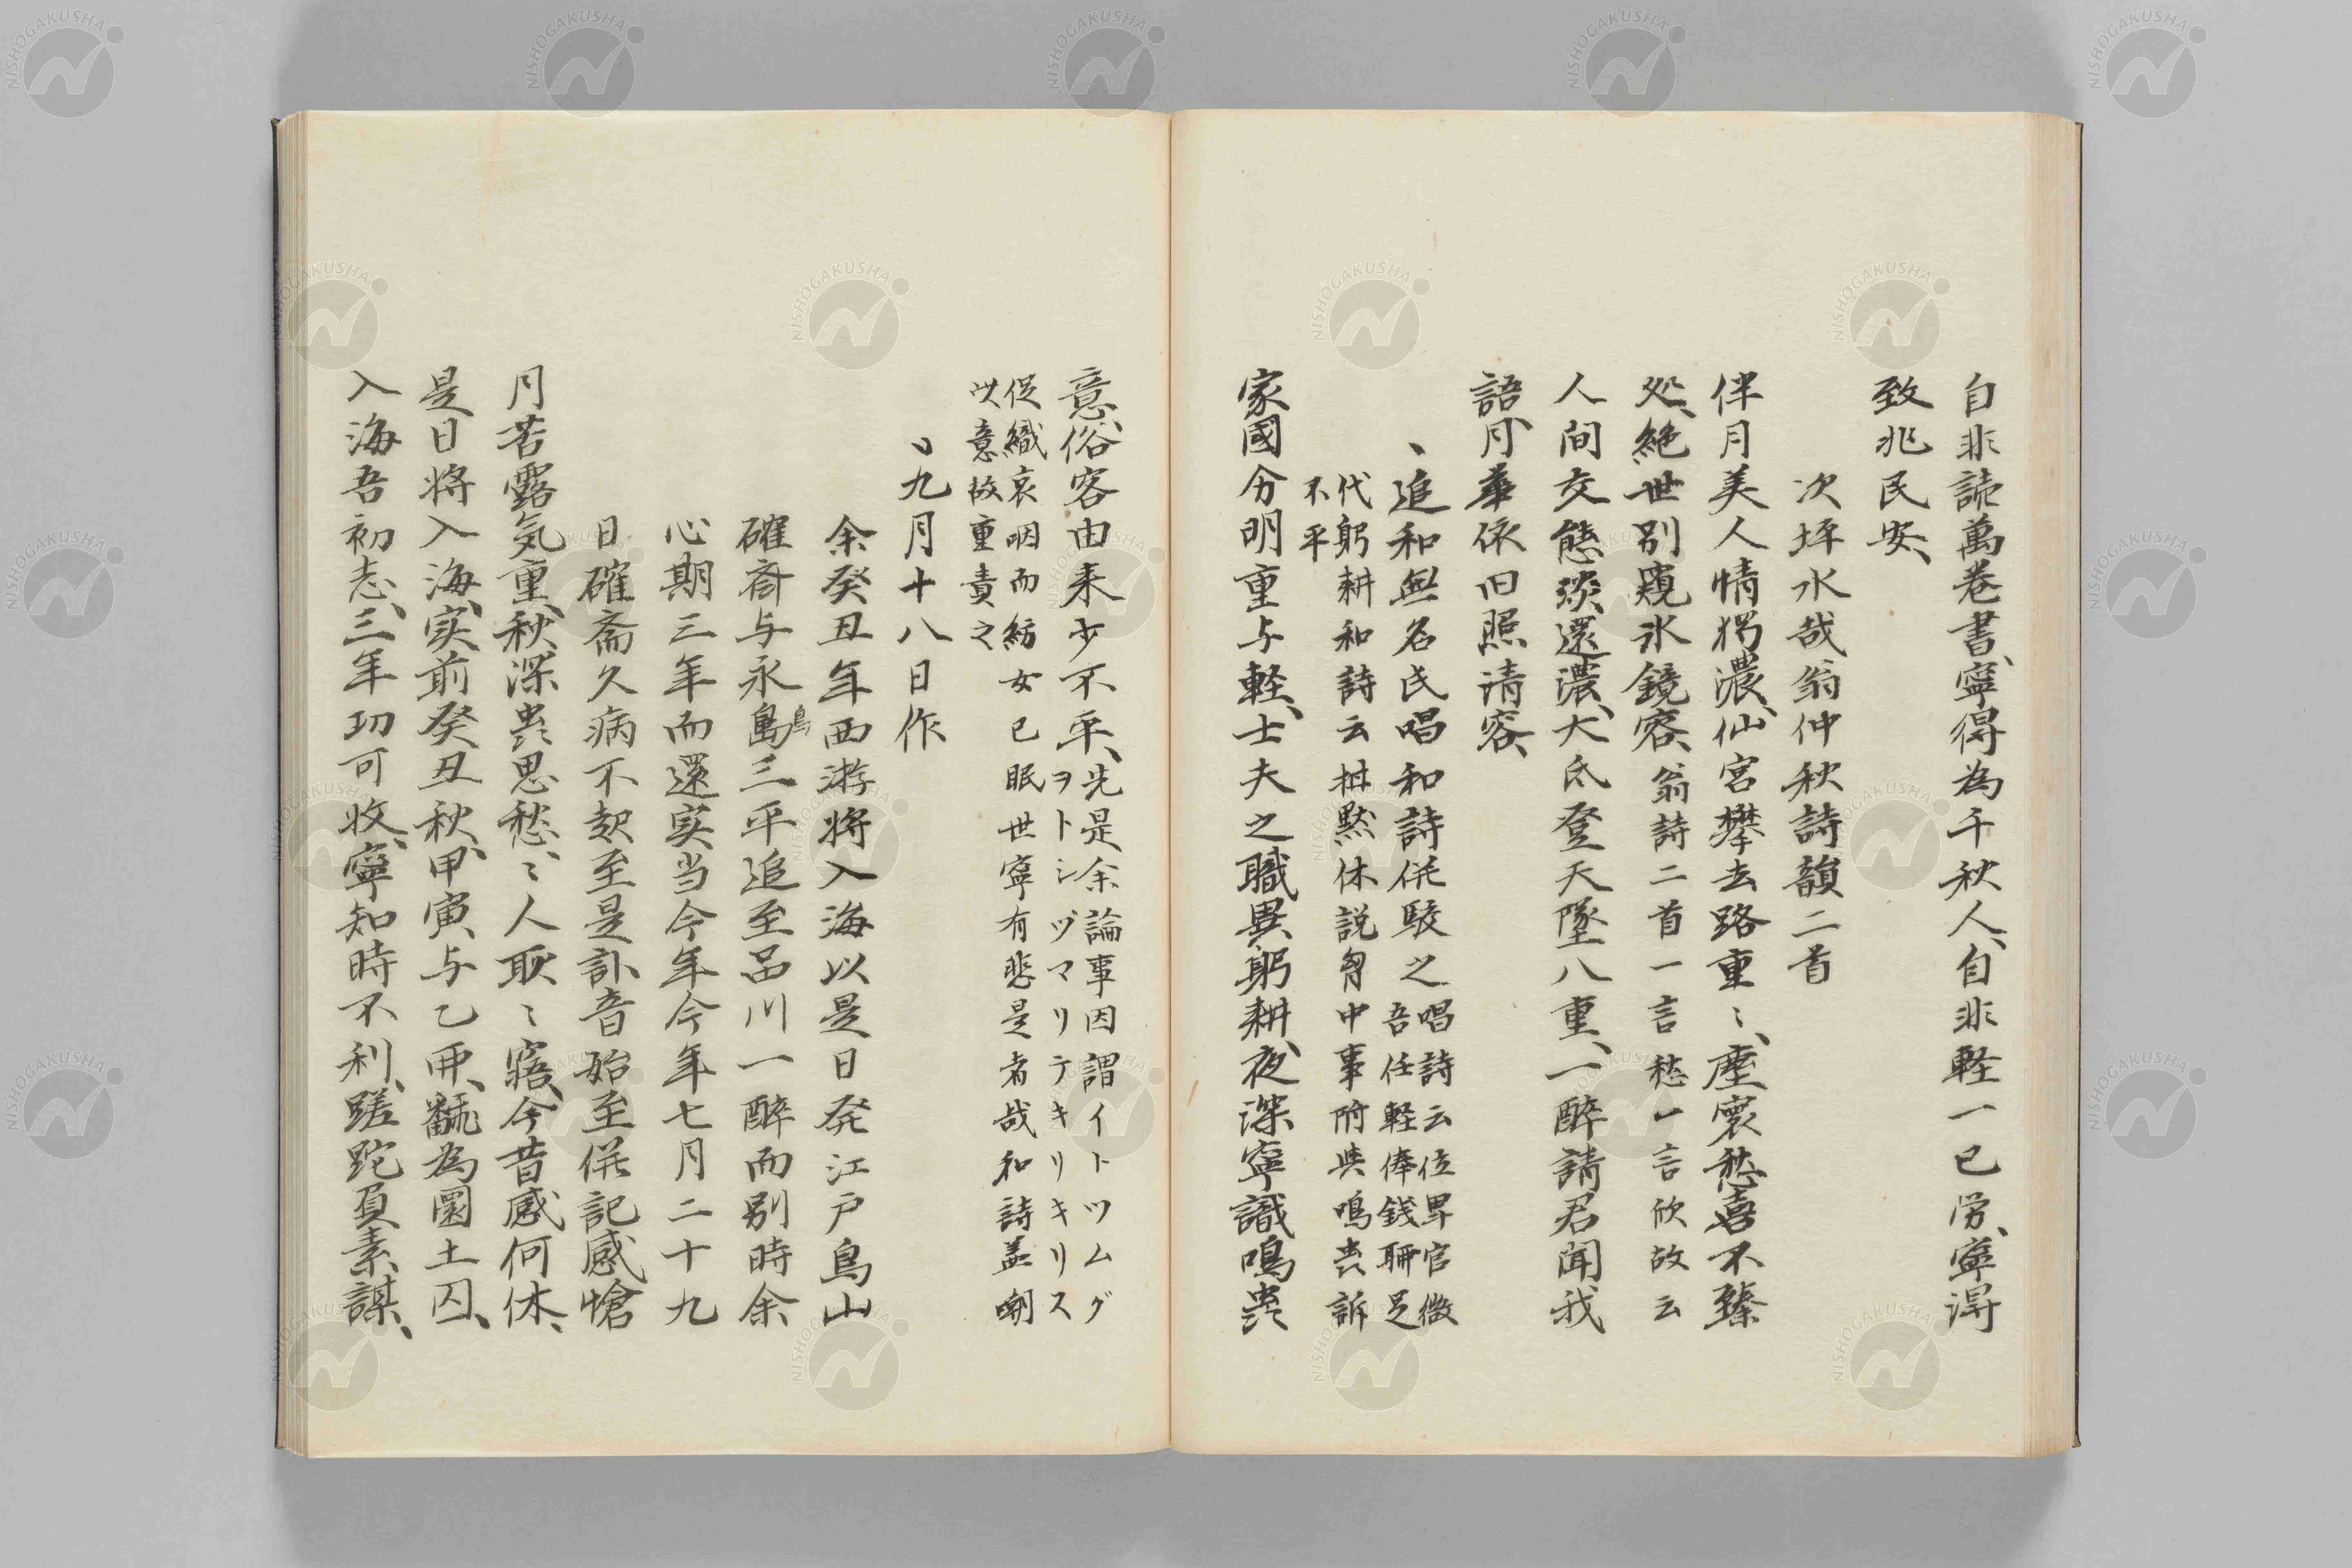 自非読萬巻書、寧得為千秋人、自非軽一己労、寧淂
致兆民安、
次坪水哉翁仲秋詩韻二首
伴月美人情獨濃、仙宮攀去路重〻、塵寰愁喜不臻
処、絶世別窺氷鏡容、翁詩二首一言愁一言欣故云
人间交態淡還濃、大氐登天墜八重、一醉請君聞我
語、月華依旧照清容、
、追和無名氏唱和詩併駁之
唱詩云位卑官微
吾任軽俸銭聊足
代躬耕和詩云拑黙休説胷中事附与鳴虫訴
不平
家國分明重与軽、士夫之職異躬耕、夜深寧識鳴虫
意、俗客由来少不平、
先是余論事因謂イトツムグ
ヲトシヅマリテキリキリス
促織哀咽而紡女已眠世寧有悲是者哉和詩盖嘲
以意故重責之
、九月十八日作
余癸丑年西游将入海以是日発江戸鳥山
確斎与永島三平追至品川一醉而别時余
鳥
心期三年而還実当今年今年七月二十九
日確斎久病不起至是訃音始至併記感愴
月苦露気重、秋深虫思愁、〻人耿〻寤、今昔感何休、
是日将入海、実前癸丑秋、甲寅与乙夘、飜為圄土囚、
入海吾初志、三年功可收、寧知時不利、蹉跎負素謀、
NISHOGAKUSHA